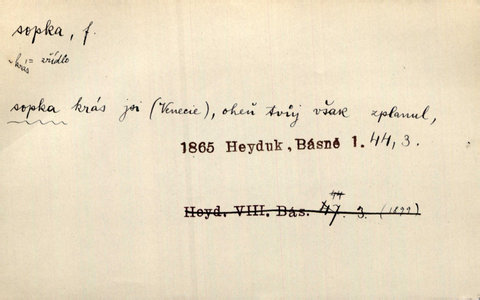 sopka, f.
krás = vřídlo
sopka krás jsi (Venecie), oheň tvůj však zplanul,
1865 Heyduk, Básně 1. 44, 3.
44
Heyd. VIII. Bás. 47. 3. (1899)